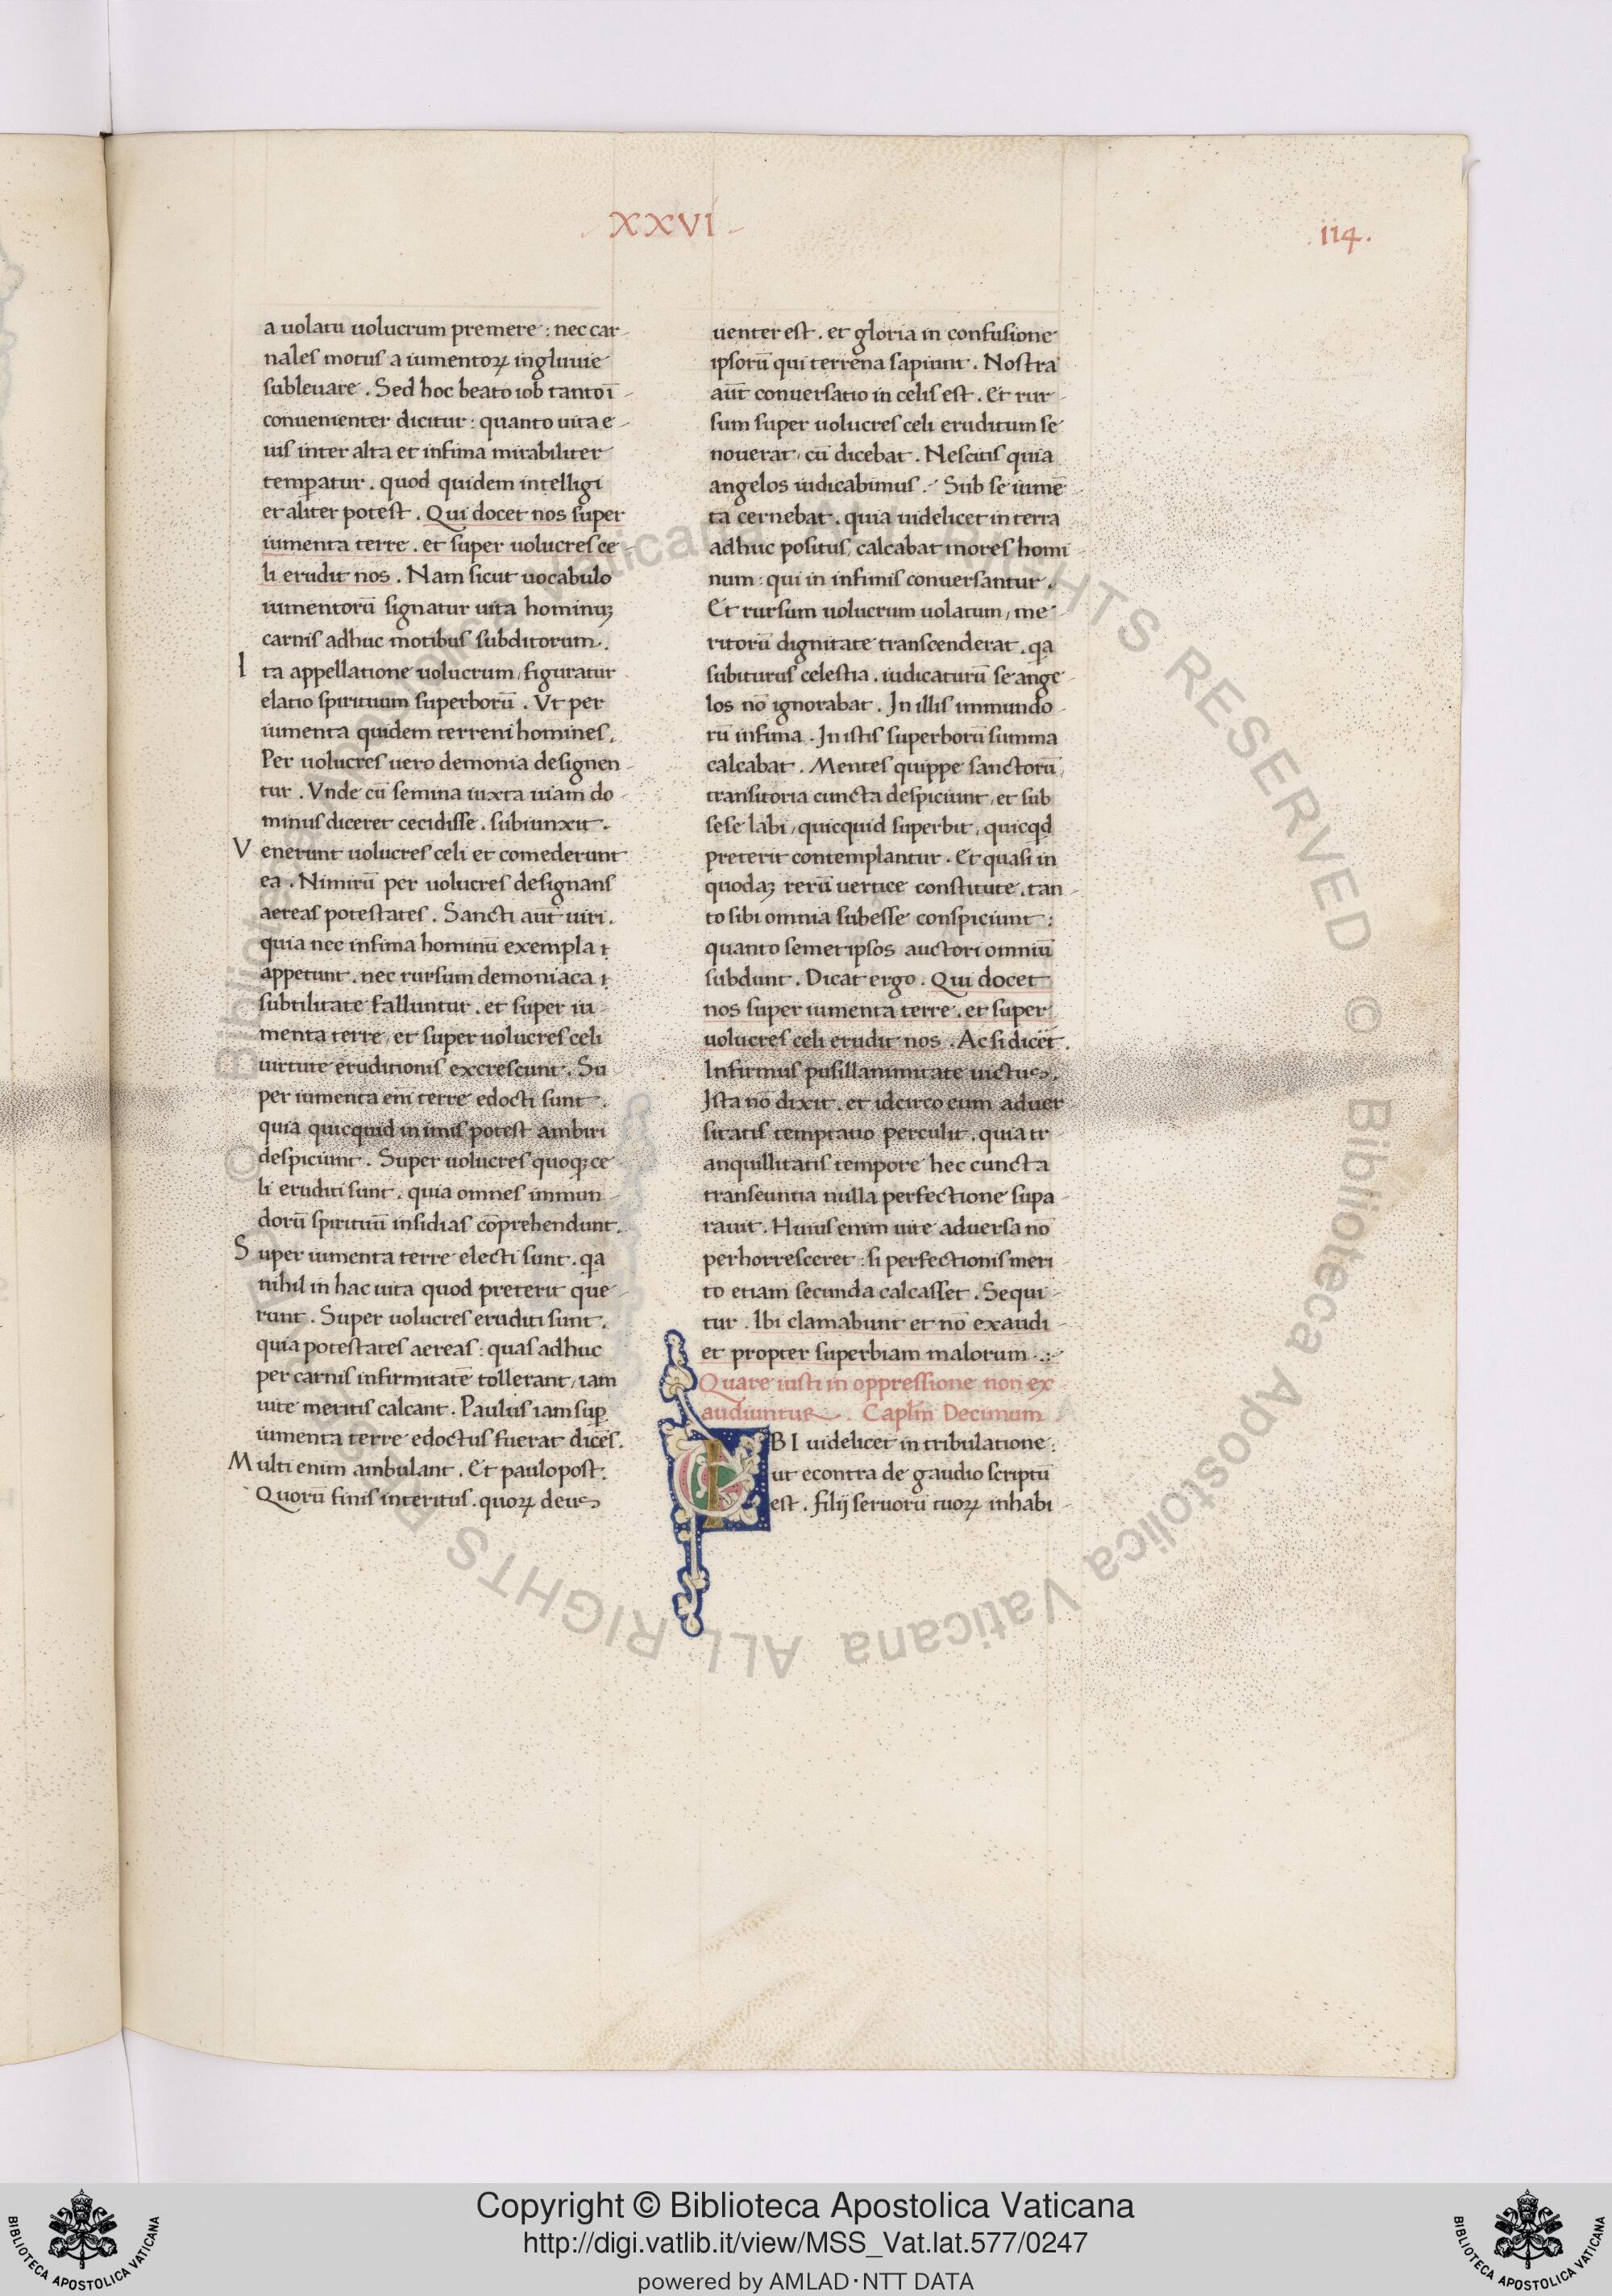 XXVI
114.
a uolatu uolucrum premere : nec car-
nales motus a iumentoꝝ ingluuie
subleuare . Sed hoc beato iob tanto ī-
conuenienter dicitur : quanto uita e-
ius inter alta et infima mirabiliter
temꝑatur . quod quidem intelligi
et aliter potest . Qui docet nos super
iumenta terre . et super uolucres ce-
li erudit nos . Nam sicut uocabulo
iumentorū signatur uita hominuꝫ
carnis adhuc motibus subditorum .
Ita appellatione uolucrum, figuratur
elatio spirituum superborū . Vt per
iumenta quidem terreni homines .
Per uolucres uero demonia designen-
tur . Vnde cū semina iuxta uiam do-
minus diceret cecidisse . subiunxit .
Venerunt uolucres celi et comederunt
ea . Nimirū per uolucres designans
aereas potestates . Sancti aūt uiri .
quia nec infima hominū exempla
appetunt . nec rursum demoniaca
subtilitate falluntur . et super iu-
menta terre, et super uolucres celi
uirtute eruditionis excrescunt . Su
per iumenta eni terre edocti sunt .
quia quicquid in imis potest ambiri
despiciunt . Super uolucres quoqꝫ ce
li eruditi sunt . quia omnes immun-
dorū spirituū insidias cōprehendunt .
Super iumenta terre electi sunt . qa
nihil in hac uita quod preterit que-
runt . Super uolucres eruditi sunt .
quia potestates aereas : quas adhuc
per carnis infirmitatē tollerant, iam
uite meritis calcant . Paulus iam suꝑ
iumenta terre edoctus fuerat dicēs .
Multi enim ambulant . Et paulopost .
Quorū finis interitus . quoꝝ deus
uenter est . et gloria in confusione
ipsorū qui terrena sapiunt . Nostra
aūt conuersatio in celis est . Et rur-
sum super uolucres celi eruditum se
nouerat, cū dicebat . Nescitis quia
angelos iudicabimus . Sub se iumē-
ta cernebat . quia uidelicet in terra
adhuc positus, calcabat mores homi
num : qui in infimis conuersantur .
Et rursum uolucrum uolatum, me-
ritorū dignitate transcenderat . qa
subiturus celestia . iudicaturū se ange-
los nō ignorabat . In illis immundo-
rū infima . In istis superborū summa
calcabat . Mentes quippe sanctorū,
transitoria cuncta despiciunt, et sub
sese labi, quicquid superbit, quicqd
preterit contemplantur . Et quasi in
quodaꝫ rerū uertice constitute . tan-
to sibi omnia subesse conspiciunt :
quanto semetipsos auctori omniū
subdunt . Dicat ergo . Qui docet
nos super iumenta terre . et super
uolucres celi erudit nos . Ac si dic̄et .
Infirmus pusillanimitate uictus .
Ista nō dixit . et idcirco eum aduer
sitatis temptatio perculit . quia tr-
anquillitatis tempore hec cuncta
transeuntia nulla perfectione supa-
rauit . Huius enim uite aduersa nō
perhorresceret : si perfectionis meri-
to etiam secunda calcasset . Sequi-
tur . Ibi clamabunt et nō exaudi-
et propter superbiam malorum .:
Quare iusti in oppressione non ex-
audiuntur . Caplm̄ Decimum .
IBI uidelicet in tribulatione :
ut econtra de gaudio scriptū
est . filij seruorū tuoꝝ inhabi-
© Biblioteca Apostolica Vaticana ALL RIGHTS RESERVED © Biblioteca Apostolica Vaticana ALL RIGHTS RESERVED
Copyright © Biblioteca Apostolica Vaticana
http://digi.vatlib.it/view/MSS_Vat.lat.577/0247
powered by AMLAD·NTT DATA
BIBLIOTECA APOSTOLICA VATICANA
BIBLIOTECA APOSTOLICA VATICANA